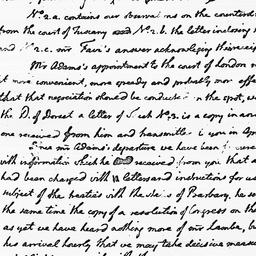 No. 2.a. contains our observations on the counterdr
from the court of Tuscany No. 2.b. the letter inclosing
and 2.c. our Favi's answer acknowledging their recei
Mr Adams's appointment to the court of London
it more convenient, more speedy and probably mor
that that negotiation should be conducted on the spot, w
the D. of Dorset a letter of which No. 3. is a copy in an
one received from him and transmitted you in Apr
Since mr Adams's departure we have been
with information which he received from you that a
had been charged with letters and instructions for us
subject of the treaties with the states of Barbary, he se
the same time the copy of a resolution of Congress on th
as yet we have heard nothing more of mr Lambe, bu
his arrival hourly that we may take decisive measu